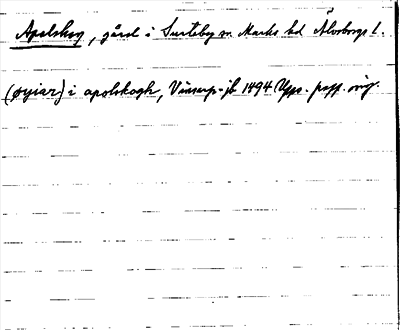 Apelskog, gård i Surteby sn. Marks hd Älvsborgs l.
(øyiar) i apolskogh, Vinsarp-jb 1494 Upps. papp. orig.